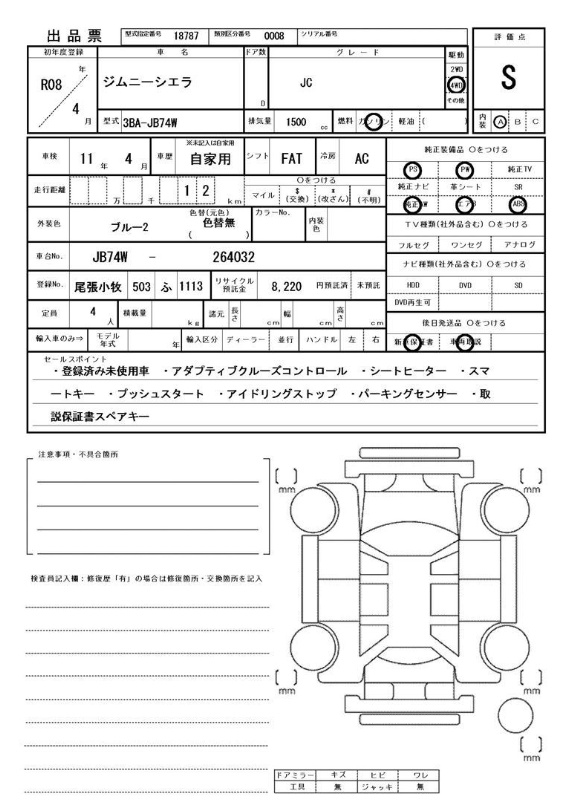 出品票 型式指定番号 18787 類別区分番号 0008 シリアル番号
評価点
S
内装 A B C
初年度登録 車名 ドア数 グレード 駆動
R08 年 4 月
ジムニーシエラ D JC
2WD
4WD
その他
型式 3BA-JB74W 排気量 1500 cc 燃料 ガソリン 軽油 ( )
車検 11 年 4 月 車歴 ※未記入は自家用 自家用 シフト FAT 冷房 AC
純正装備品 Oをつける
PS PW 純正TV
純正ナビ 革シート SR
純正AW エアB ABS
走行距離 万 千 1 2 km
Oをつける
マイル $ (交換) * (改ざん) # (不明)
外装色 ブルー2 色替(元色) 色替無 ( ) カラーNo. 内装色
TV種類(社外品含む) Oをつける
フルセグ ワンセグ アナログ
車台No. JB74W - 264032
ナビ種類(社外品含む) Oをつける
HDD DVD SD
DVD再生可
登録No. 尾張小牧 503 ふ 1113 リサイクル預託金 8,220 円預託済 未預託
定員 4 人 積載量 kg 諸元 長さ cm 幅 cm 高さ cm
後日発送品 Oをつける
新車保証書 車両取説
輸入車のみ⇒ モデル年式 年 輸入区分 ディーラー 並行 ハンドル 左 右
セールスポイント
・登録済み未使用車 ・アダプティブクルーズコントロール ・シートヒーター ・スマ
ートキー ・プッシュスタート ・アイドリングストップ ・パーキングセンサー ・取
説保証書スペアキー
注意事項・不具合箇所
検査員記入欄:修復歴「有」の場合は修復箇所・交換箇所を記入
[ ] mm
[ ] mm
[ ] mm
[ ] mm
[ ] mm
ドアミラー キズ ヒビ ワレ
工具 無 ジャッキ 無